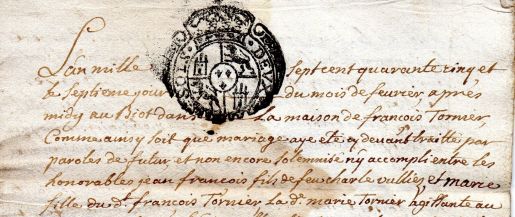 SOLS DEUX
L'an mille sept cent quarante cinq et
le septieme jour du mois de fevrier apres
midy au Biot dans La maison de francois Tornier,
Comme ainsy soit que mariage aye eté cy devant traitté par
paroles de futur et non encore solemnisé ny accompli entre les
honorables jean francois fils de feu charle vulliez et marie
fille du dt. francois Tornier la dt. marie Tornier agissante au